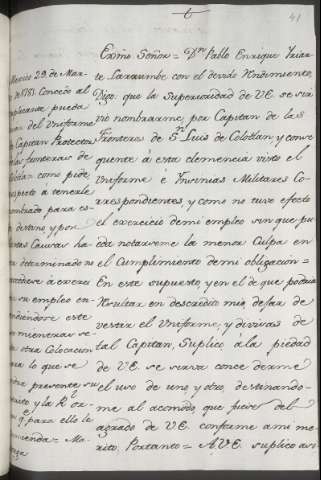 41
Exmo Señor = Dn Pablo Enrique Yriar-
te Larrumbe con el devido Rendimiento,
Digo: que la Superioridad de VE. se sir-
vió nombrarme, por Capitan de las
Fronteras de Sn Luis de Colotlan y conse-
quente á esta clemencia visto el
Uniforme é Insinias Militares Co-
rrespondientes, y como no tuve efecto
el exercicio de mi empleo sin que pu-
eda notarseme la menor Culpa en
el Cumplimiento de mi obligacion =
En este supuesto, y en el de que podria
Resultar en descredito mio, dejar de
vestir el Uniforme, y divisas de
tal Capitan, Suplico á la piedad
de VE. se sirva concederme
el uso de uno, y otro, destinando-
me al acomodo, que fuere del
agrado de VE. conforme á mi me-
rito, Portanto = A VE. suplico asi
Mexico 29 de Mar-
zo de 1781. Concedo al
suplicante pueda
usar del Uniforme
Capitan Protector
las fronteras de
Colotlan como pide
respecto á tenerle
nombrado para es-
destino, y por
Causas ha
determinado no
á exercer
su empleo en-
este
mientras se
otra Colocacion
lo que se
presente su
para ello le